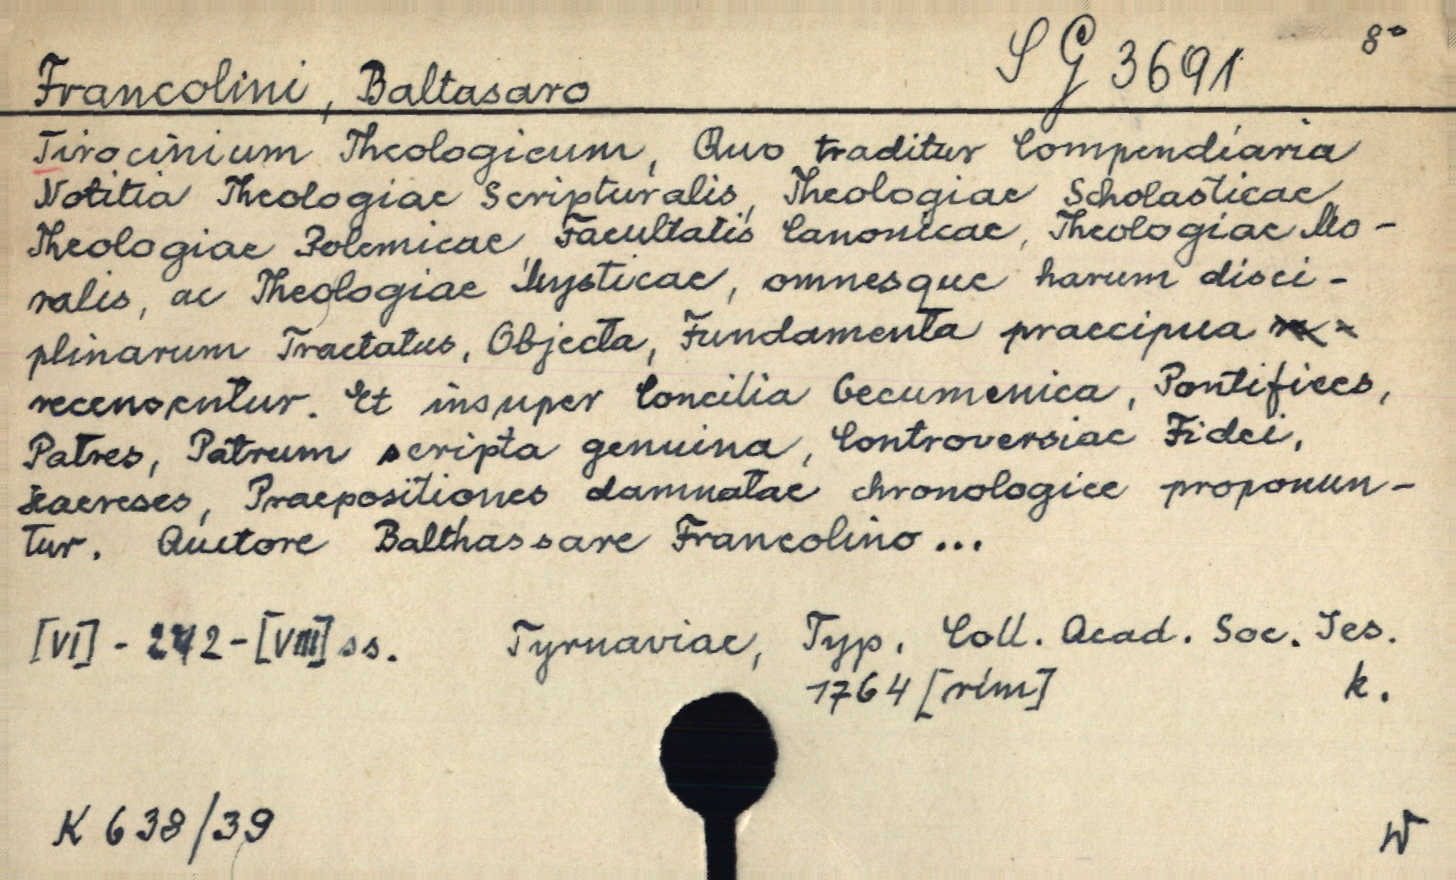 SG 3691 8°
Francolini, Baltasaro
Tirocinium Theologicum, Quo traditur Compendiaria
Notitia Theologiae Scripturalis, Theologiae Scholasticae,
Theologiae Polemicae, Facultatis Canonicae, Theologiae Mo-
ralis, ac Theologiae Mysticae, omnesque harum disci-
plinarum Tractatus, Objecta, Fundamenta praecipua
recensentur. Et insuper Concilia Oecumenica, Pontifices,
Patres, Patrum scripta genuina, Controversiae Fidei,
Haereses, Praepositiones damnatae chronologice proponun-
tur. Auctore Balthassare Francolino...
[VI] - 242 - [VIII] ss. Tyrnaviae, Typ. Coll. Acad. Soc. Jes.
1764 [rím] k.
K 638/39 W